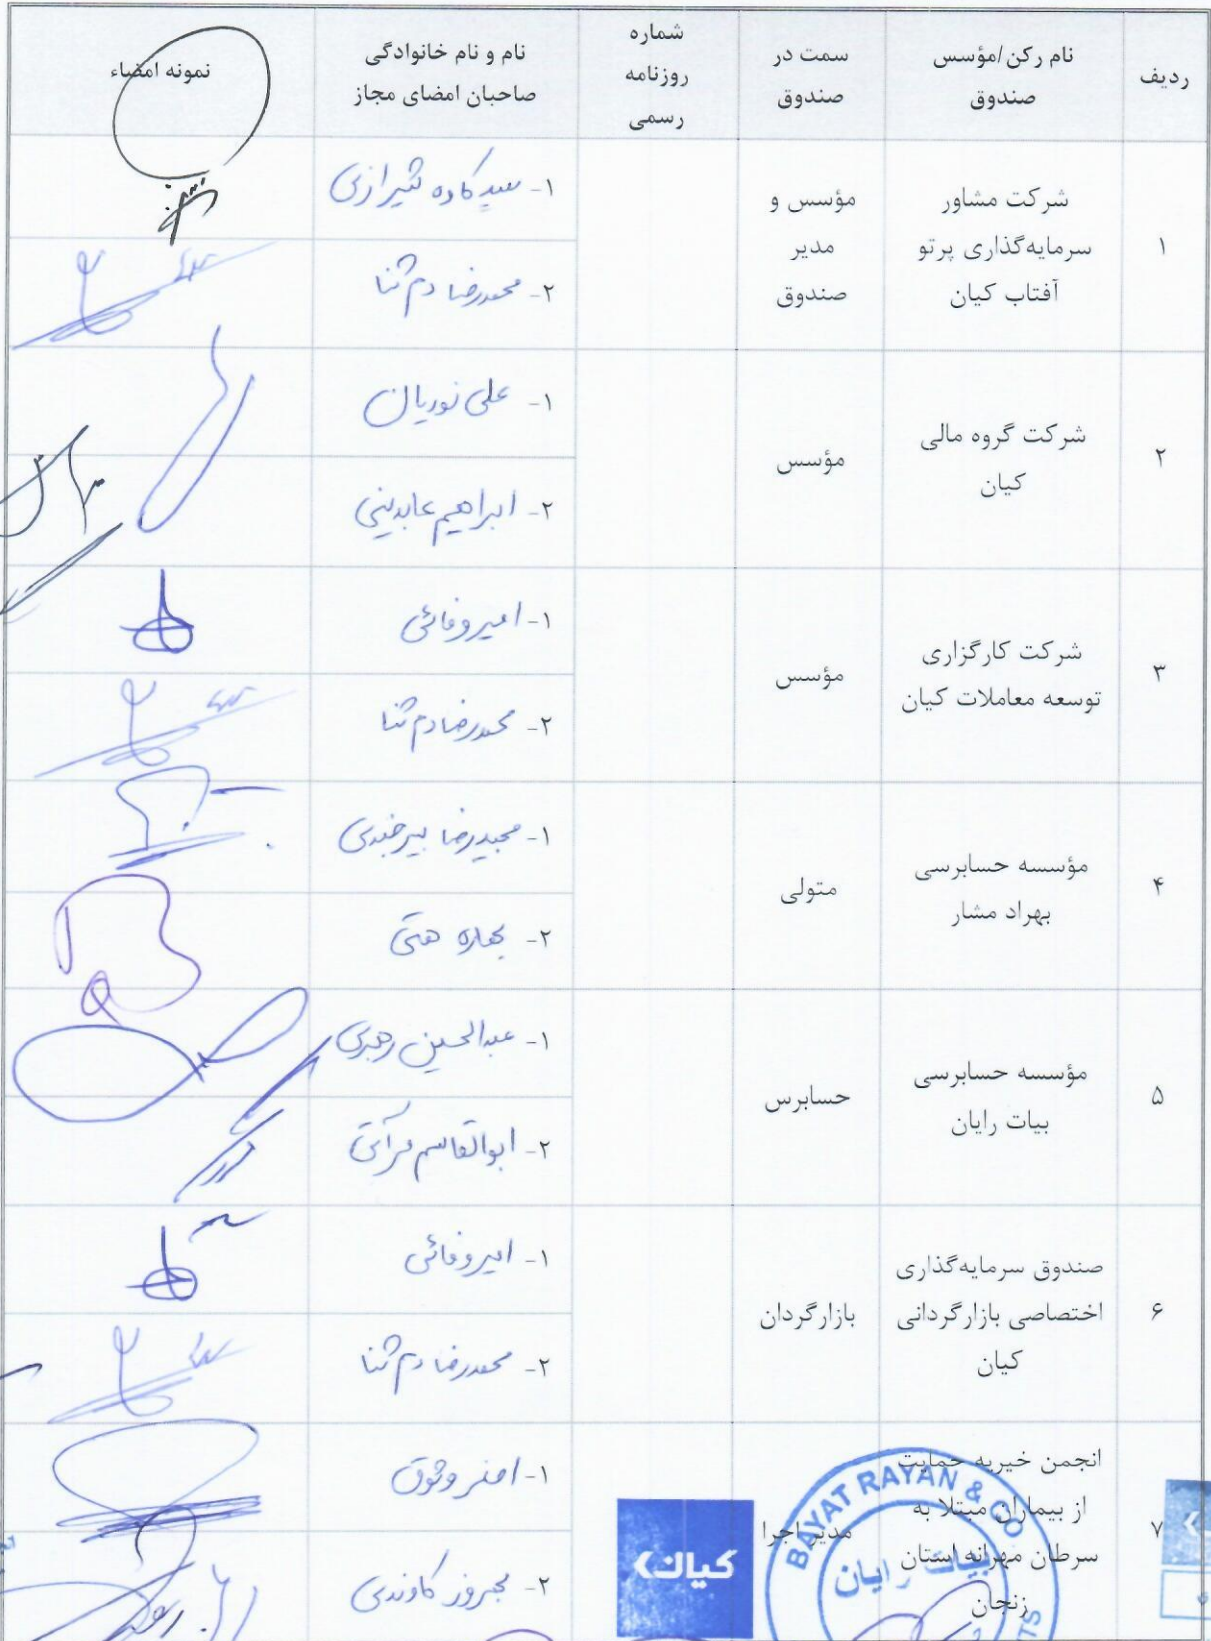 ردیف
نام رکن/مؤسس
صندوق
سمت در
صندوق
شماره
روزنامه
رسمی
نام و نام خانوادگی
صاحبان امضای مجاز
نمونه امضاء
۱
شرکت مشاور
سرمایه‌گذاری پرتو
آفتاب کیان
مؤسس و
مدیر
صندوق
۱- سید کاوه شیرازی
۲- محمدرضا دم ثنا
۲
شرکت گروه مالی
کیان
مؤسس
۱- علی نوریان
۲- ابراهیم عابدینی
۳
شرکت کارگزاری
توسعه معاملات کیان
مؤسس
۱- امیر وفائی
۲- محمدرضا دم ثنا
۴
مؤسسه حسابرسی
بهراد مشار
متولی
۱- مجیدرضا بیرجندی
۲- بهاره
۵
مؤسسه حسابرسی
بیات رایان
حسابرس
۱- عبدالحسین رهبری
۲- ابوالقاسم مرآتی
۶
صندوق سرمایه‌گذاری
اختصاصی بازارگردانی
کیان
بازارگردان
۱- امیر وفائی
۲- محمدرضا دم ثنا
۷
انجمن خیریه حمایت
از بیماران مبتلا به
سرطان مهرانه استان
زنجان
مدیر اجرا
۱- وثوق
۲- بهروز کاوندی
کیان
BAYAT RAYAN & CO
بیات رایان